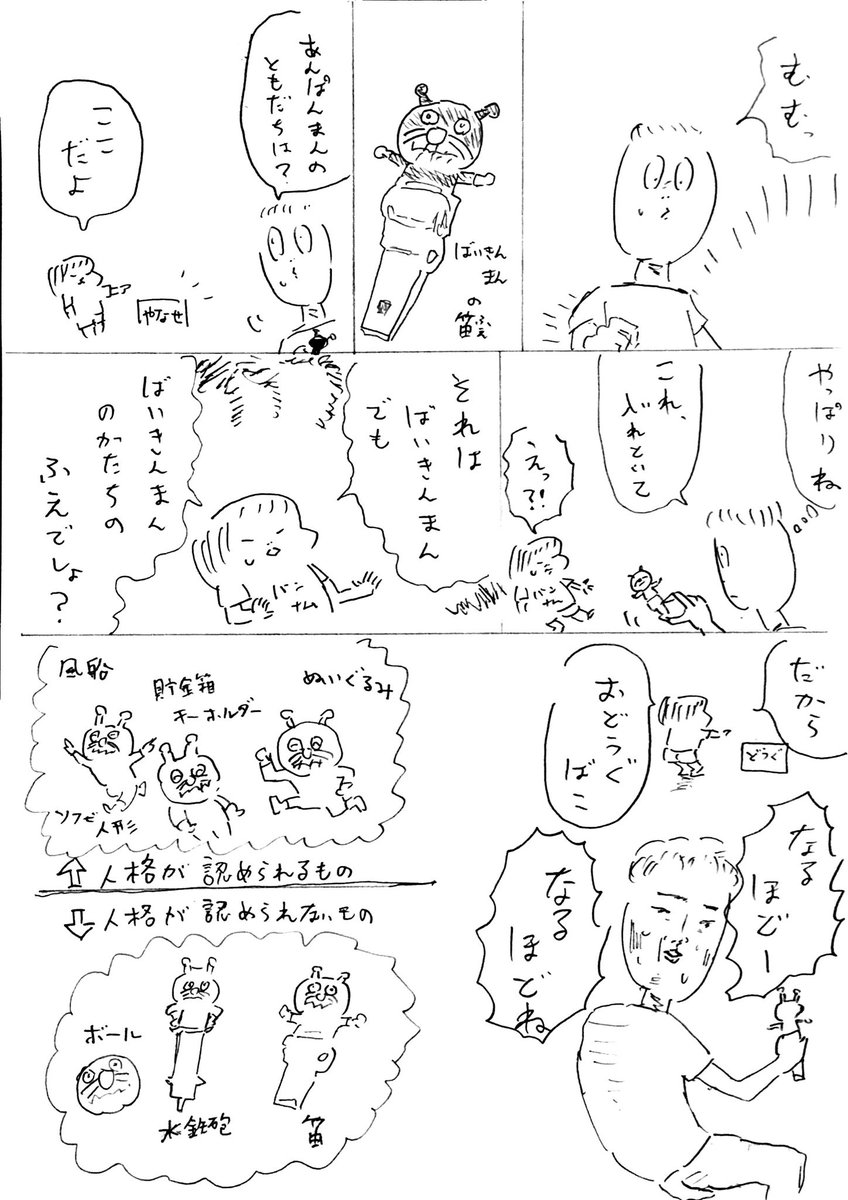 むむっ
ばいきん
まん
の
笛ふえ
あんぱんまんの
ともだちは？
ここ
だよ
やなせ
やっぱりね
これ、
入れといて
えっ?!
バンナム
それは
ばいきんまん
でも
ばいきんまん
のかたちの
ふえでしょ？
バンナム
だから
おどうぐ
ばこ
どうぐ
なる
ほどー
なる
ほどね
風船
貯金箱
キーホルダー
ぬいぐるみ
ソフビ
人形
⇧人格が認められるもの
⇩人格が認められないもの
ボール
水鉄砲
笛